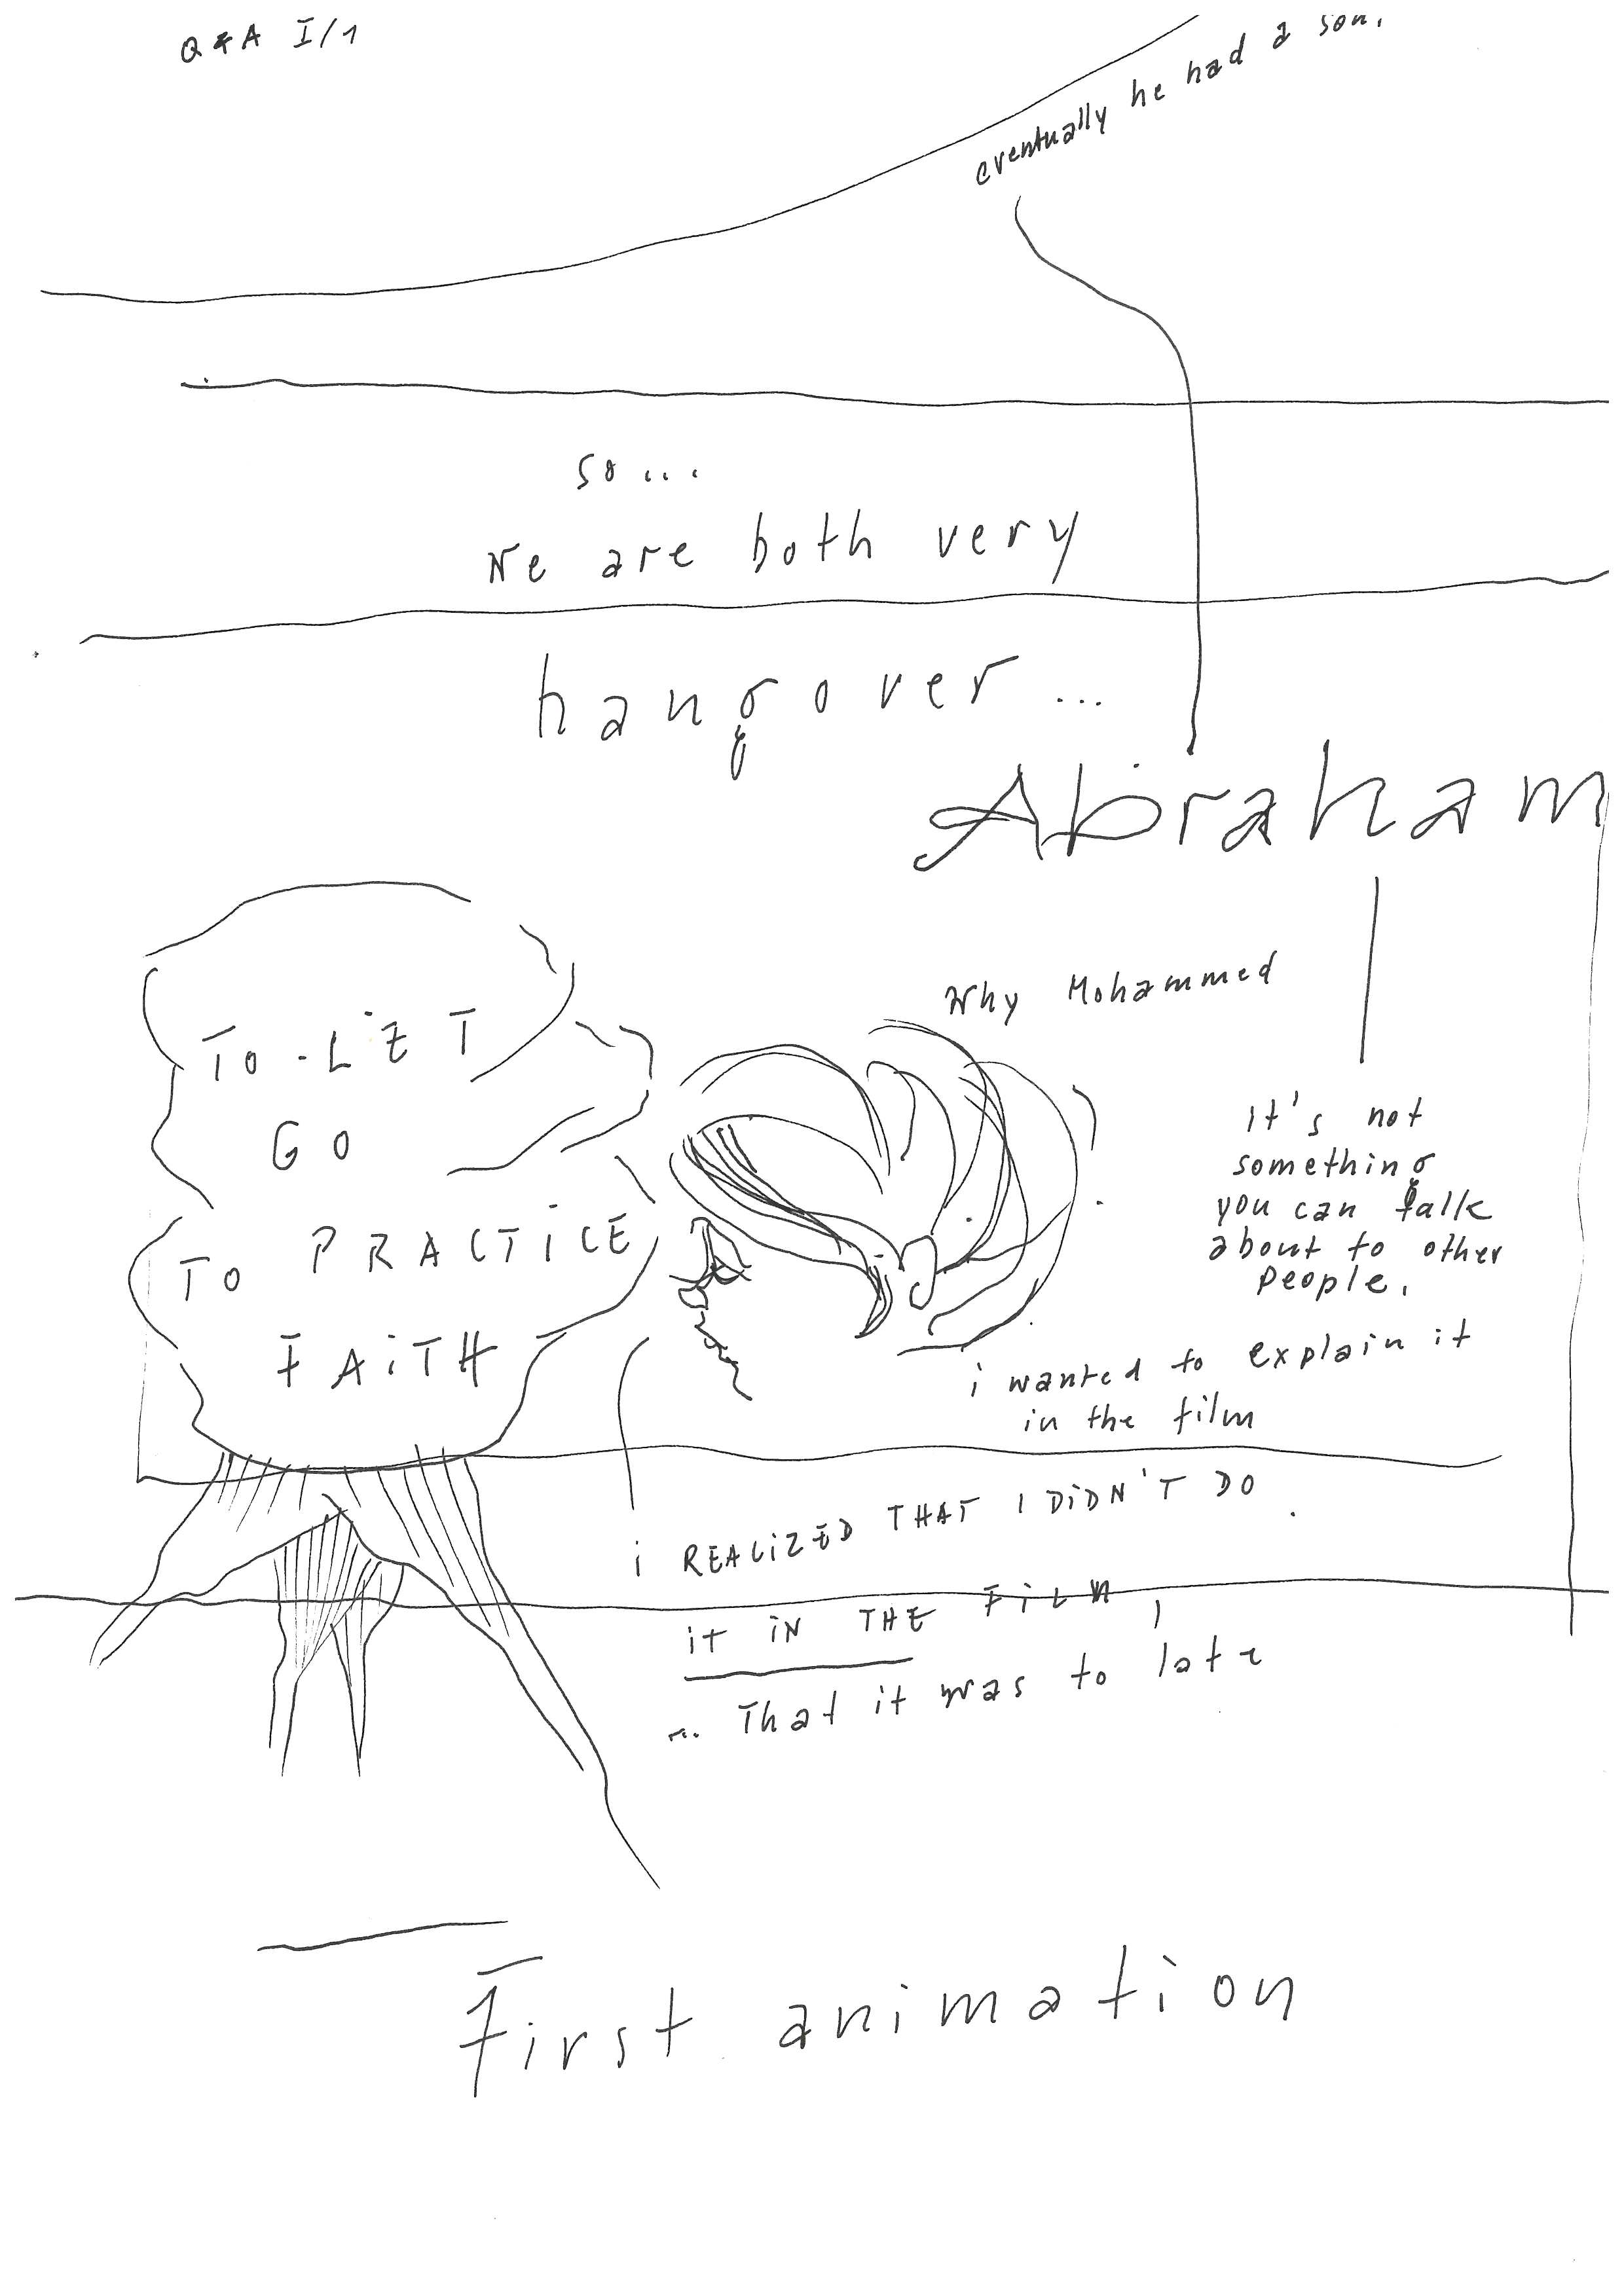 Q & A I/1
eventually he had a son.
so...
We are both very
hangover...
Abraham
Why Mohammed
TO-LET
GO
TO PRACTICE
FAITH
it's not
something
you can talk
about to other
people.
i wanted to explain it
in the film
i REALIZED THAT I DIDN'T DO
iT IN THE FILM,
... That it was to late
First animation